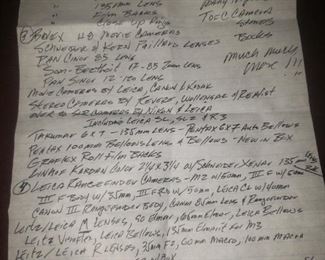 " 135mm Lens
" Film Backs
" Close Up Ring
Toe-C Camera
③ Bolex H8 Movie Cameras
Stands
Schneider & Kern Paillard Lenses
Books
Pan Cinor 85 Lens
Much Much
Som-Berthiot 17-85 Zoom Lens
More!!!
Pan Sinor 12-120 Lens
Movie Cameras by Leica, Canon & Kodak
Stereo Cameras by Revere, Wollensak & Realist
Over 20 SLR Cameras by Nikon & Leica
Including Leica SL, SL2 & R3
Takumar 6x7 - 135mm Lens - Pentax 6x7 Auto Bellows
Pentax 100mm Bellows Lens & Bellows - New in Box
Graflex Roll Film Backs
Linhof Kardan Color 2¼ x 3¼ w/Schneider Xenar 135mm
④ Leica Rangefinder Cameras - M2 w/50mm, III F w/50mm
III F Body w/35mm, III F RS w/50mm, Leica CL w/40mm
Canon III Rangefinder Body, Canon 85mm Lens & Rangefinder
Leitz/Leica M Lenses, 90 Elmar, 65mm Elmar, Leica Bellows
Leitz Visoflex, Leica Bellows, 135mm Elmarit for M3
Leitz/Leica R Lenses, 35mm F2, 60mm Macro, 100mm Macro